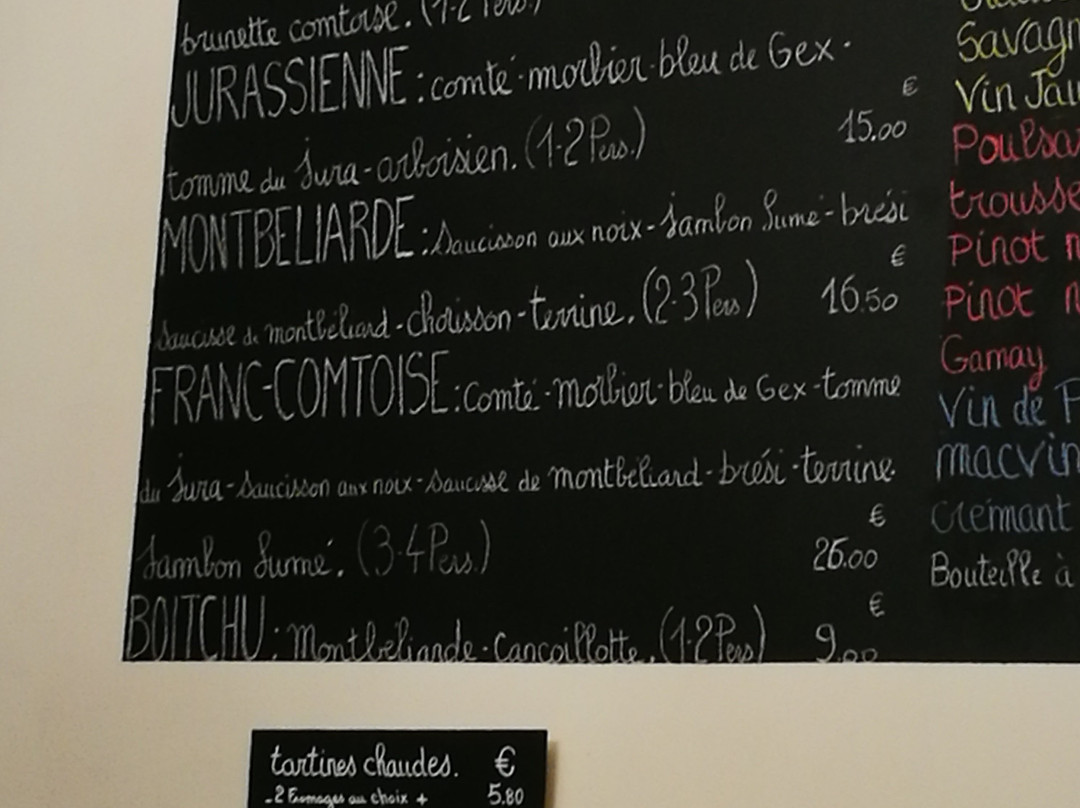 brunette comtoise. (1-2 Pers.)
JURASSIENNE : comté - morbier - bleu de Gex -
€
tomme du Jura - arboisien. (1-2 Pers.) 15.00
MONTBELIARDE : Saucisson aux noix - Jambon fumé - brési
€
Saucisse de montbéliard - choisson - terrine. (2-3 Pers) 16.50
FRANC-COMTOISE : Comté - morbier - bleu de Gex - tomme
du Jura - Saucisson aux noix - Saucisse de montbéliard - brési - terrine
€
Jambon fumé. (3-4 Pers.) 26.00
€
BOITCHU : Montbéliarde - Cancoillotte. (1-2 Pers) 9.00
Savagn
Vin Jau
Poulsa
trousse
Pinot n
Pinot n
Gamay
Vin de P
macvin
crémant
Bouteille à
tartines chaudes. €
- 2 Fromages au choix + 5.80